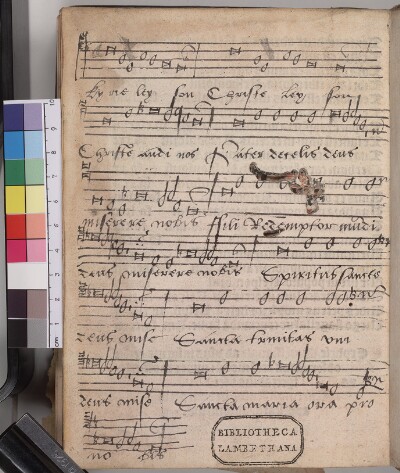 ky rie ley son Christe ley son
Christe audi nos Pater de celis deus
miserere nobis fili Redemptor mudi
deus miserere nobis Spiritus sancte
deus mise Sancta trinitas vnu
deus mise Sancta maria ora pro
no bis
BIBLIOTHECA
LAMBETHANA